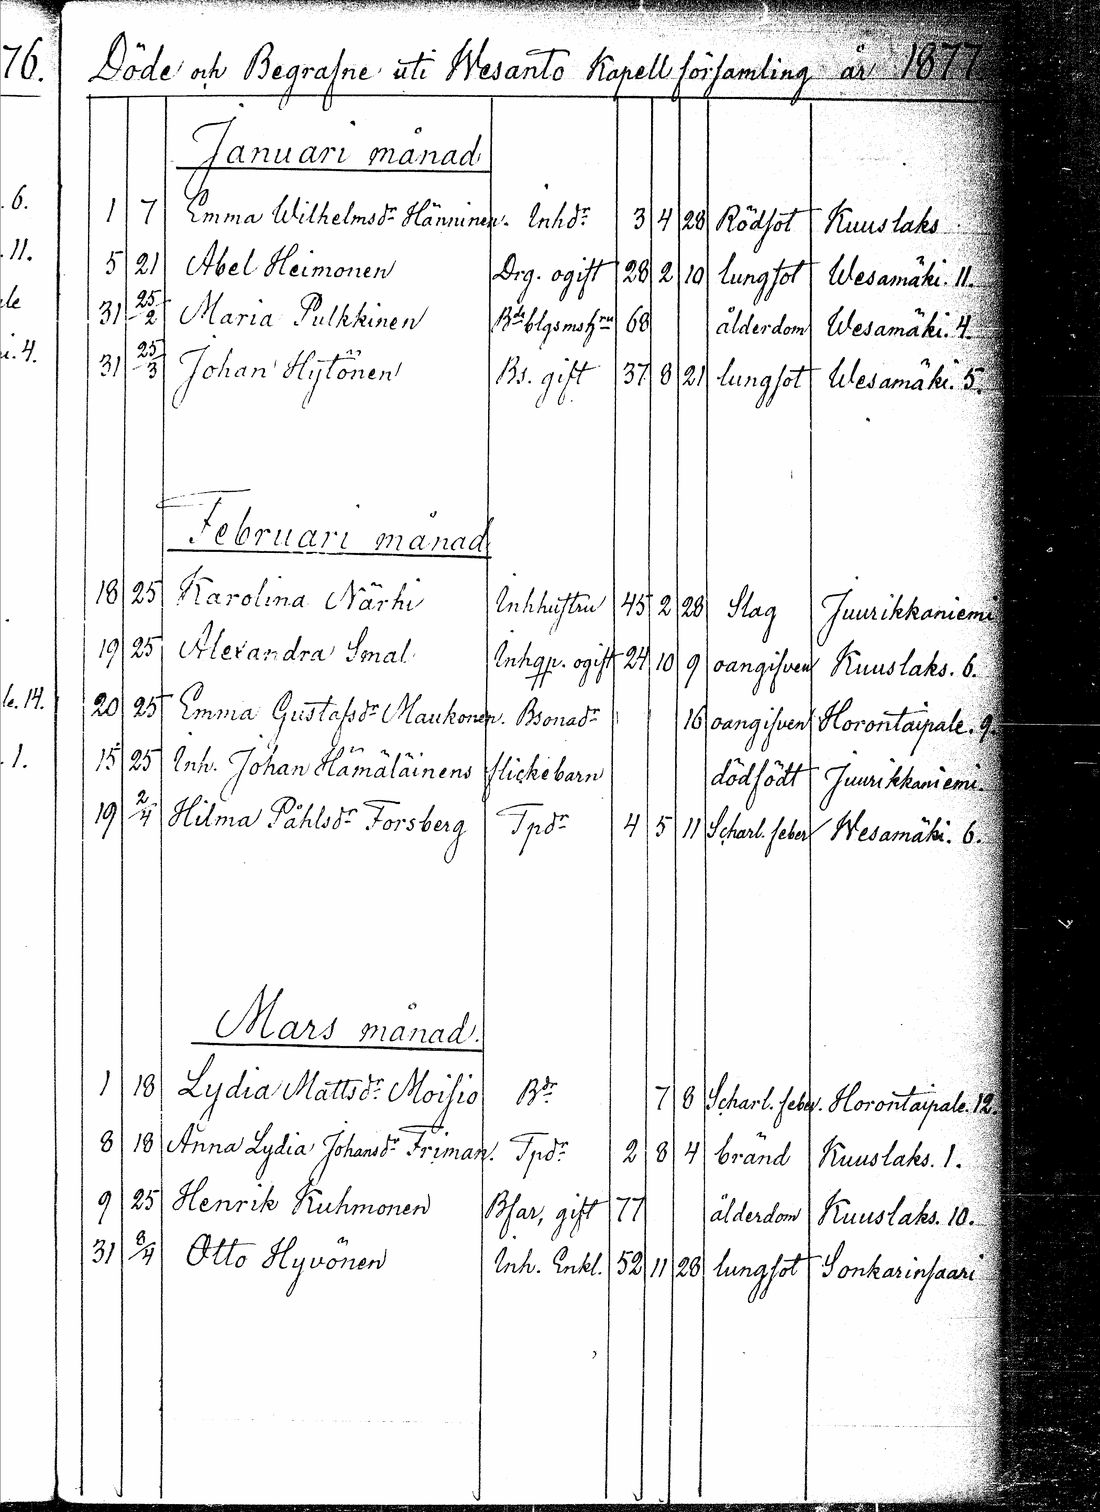 76.
Döde och Begrafne uti Wesanto Kapellförsamling år 1877
Januari månad
. 6.
1 7 Emma Wilhelmsdr Hänninen. Inhdr 3 4 28 Rödsot Kuuslaks
. 11.
5 21 Abel Heimonen Drg. ogift 28 2 10 lungsot Wesamäki. 11.
31 25/2 Maria Pulkkinen 68 ålderdom Wesamäki. 4.
i. 4.
31 25/3 Johan Hytönen Bs. gift 37 8 21 lungsot Wesamäki. 5.
Februari månad
18 25 Karolina Närhi Inhhustru 45 2 28 Slag Juurikkaniemi
19 25 Alexandra Smal Inhqp. ogift 24 10 9 oangifven Kuuslaks. 6.
le. 14.
20 25 Emma Gustafsdr Maukonen. Bsonadr 16 oangifven Horontaipale. 9.
. 1.
15 25 Inh. Johan Hämäläinens flickebarn dödfödt Juurikkaniemi.
19 2/4 Hilma Påhlsdr Forsberg Tpdr 4 5 11 Scharl. feber Wesamäki. 6.
Mars månad.
1 18 Lydia Mattsdr Moisio Bdr 7 8 Scharl. feber. Horontaipale. 12.
8 18 Anna Lydia Johansdr Friman. Tpdr 2 8 4 bränd Kuuslaks. 1.
9 25 Henrik Kuhmonen Bfar, gift 77 ålderdom Kuuslaks. 10.
31 8/4 Otto Hyvönen Inh. Enkl. 52 11 28 lungsot Sonkarinsaari